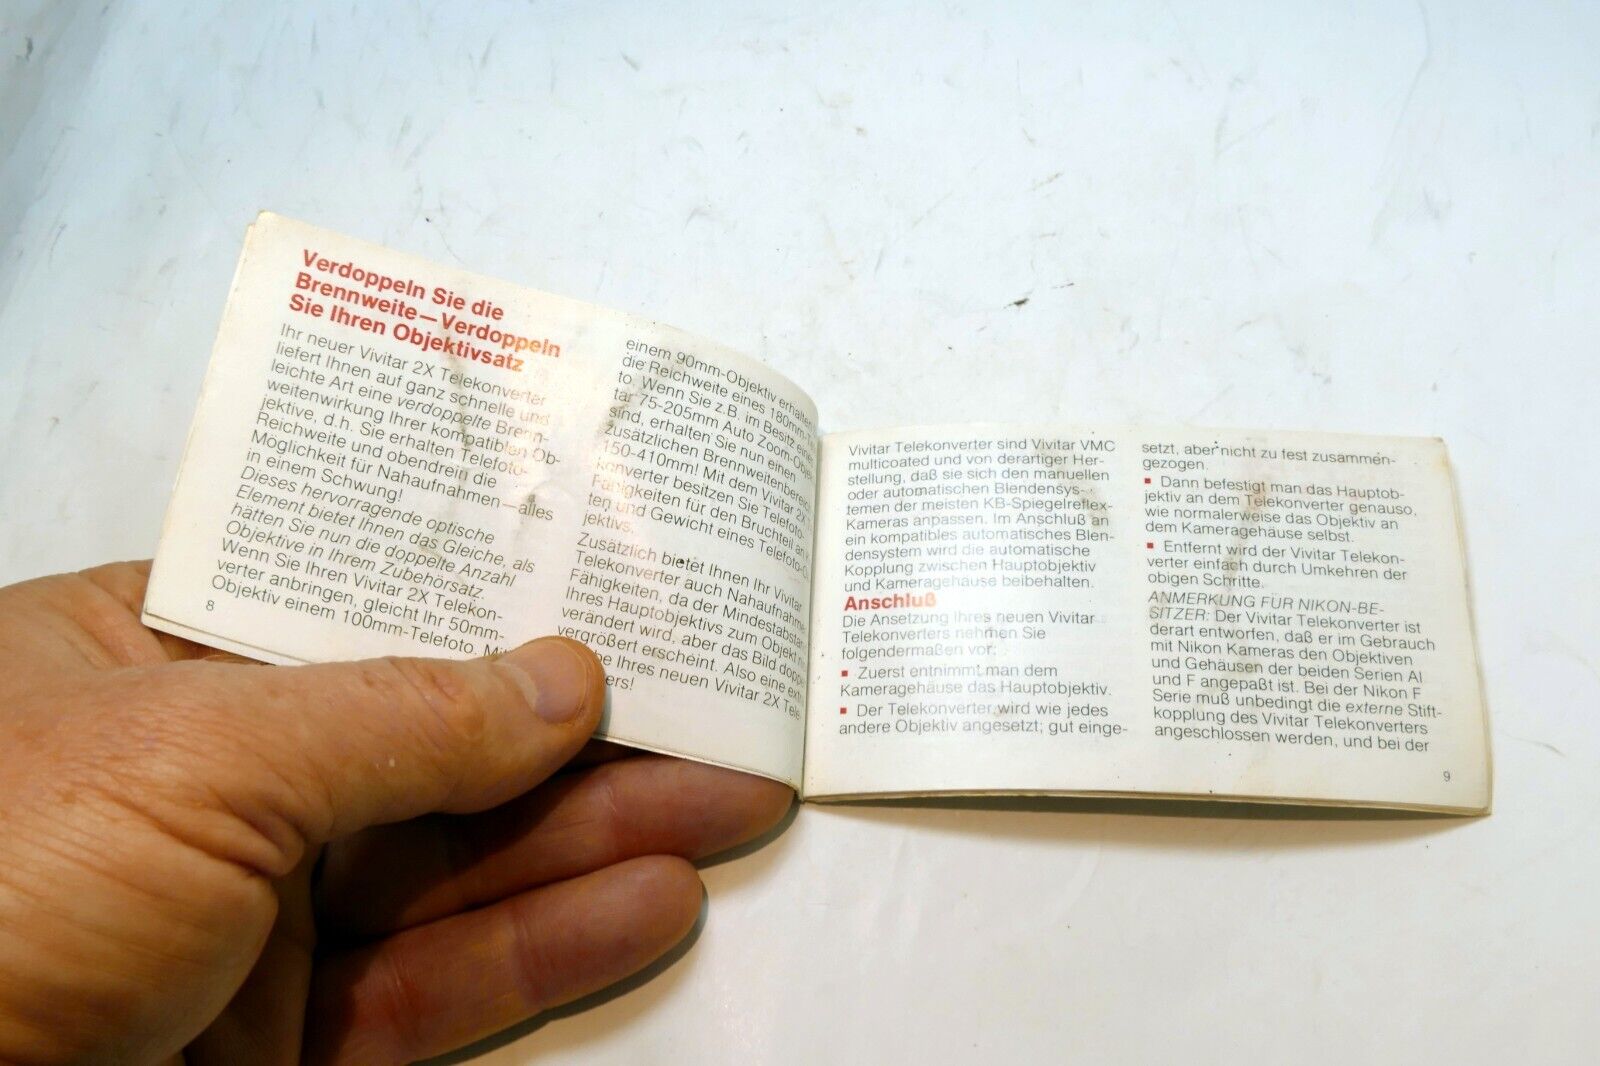 Verdoppeln Sie die
Brennweite—Verdoppeln
Sie Ihren Objektivsatz
Ihr neuer Vivitar 2X Telekonverter
liefert Ihnen auf ganz schnelle und
leichte Art eine verdoppelte Brenn-
weitenwirkung Ihrer kompatiblen Ob-
jektive, d.h. Sie erhalten Telefoto-
Reichweite und obendrein die
Möglichkeit für Nahaufnahmen—alles
in einem Schwung!
Dieses hervorragende optische
Element bietet Ihnen das Gleiche, als
hätten Sie nun die doppelte Anzahl
Objektive in Ihrem Zubehörsatz.
Wenn Sie Ihren Vivitar 2X Telekon-
verter anbringen, gleicht Ihr 50mm-
Objektiv einem 100mm-Telefoto. Mit
8
einem 90mm-Objektiv erhalten
die Reichweite eines 180mm-
to. Wenn Sie z.B. im Besitz
tar 75-205mm Auto Zoom-Objek
sind, erhalten Sie nun einen
zusätzlichen Brennweitenbereich
150-410mm! Mit dem Vivitar 2X
konverter besitzen Sie Telefoto-
Fähigkeiten für den Bruchteil an
ten und Gewicht eines Telefoto-O
jektivs.
Zusätzlich bietet Ihnen Ihr Vivitar
Telekonverter auch Nahaufnahme
Fähigkeiten, da der Mindestabstan
Ihres Hauptobjektivs zum Objekt
verändert wird, aber das Bild doppe
vergrößert erscheint. Also eine
be Ihres neuen Vivitar 2X Tele-
ers!
Vivitar Telekonverter sind Vivitar VMC
multicoated und von derartiger Her-
stellung, daß sie sich den manuellen
oder automatischen Blendensys-
temen der meisten KB-Spiegelreflex-
Kameras anpassen. Im Anschluß an
ein kompatibles automatisches Blen-
densystem wird die automatische
Kopplung zwischen Hauptobjektiv
und Kameragehäuse beibehalten.
Anschluß
Die Ansetzung Ihres neuen Vivitar
Telekonverters nehmen Sie
folgendermaßen vor:
▪ Zuerst entnimmt man dem
Kameragehäuse das Hauptobjektiv.
▪ Der Telekonverter wird wie jedes
andere Objektiv angesetzt; gut einge-
setzt, aber nicht zu fest zusammen-
gezogen.
▪ Dann befestigt man das Hauptob-
jektiv an dem Telekonverter genauso,
wie normalerweise das Objektiv an
dem Kameragehäuse selbst.
▪ Entfernt wird der Vivitar Telekon-
verter einfach durch Umkehren der
obigen Schritte.
ANMERKUNG FÜR NIKON-BE-
SITZER: Der Vivitar Telekonverter ist
derart entworfen, daß er im Gebrauch
mit Nikon Kameras den Objektiven
und Gehäusen der beiden Serien AI
und F angepaßt ist. Bei der Nikon F
Serie muß unbedingt die externe Stift-
kopplung des Vivitar Telekonverters
angeschlossen werden, und bei der
9